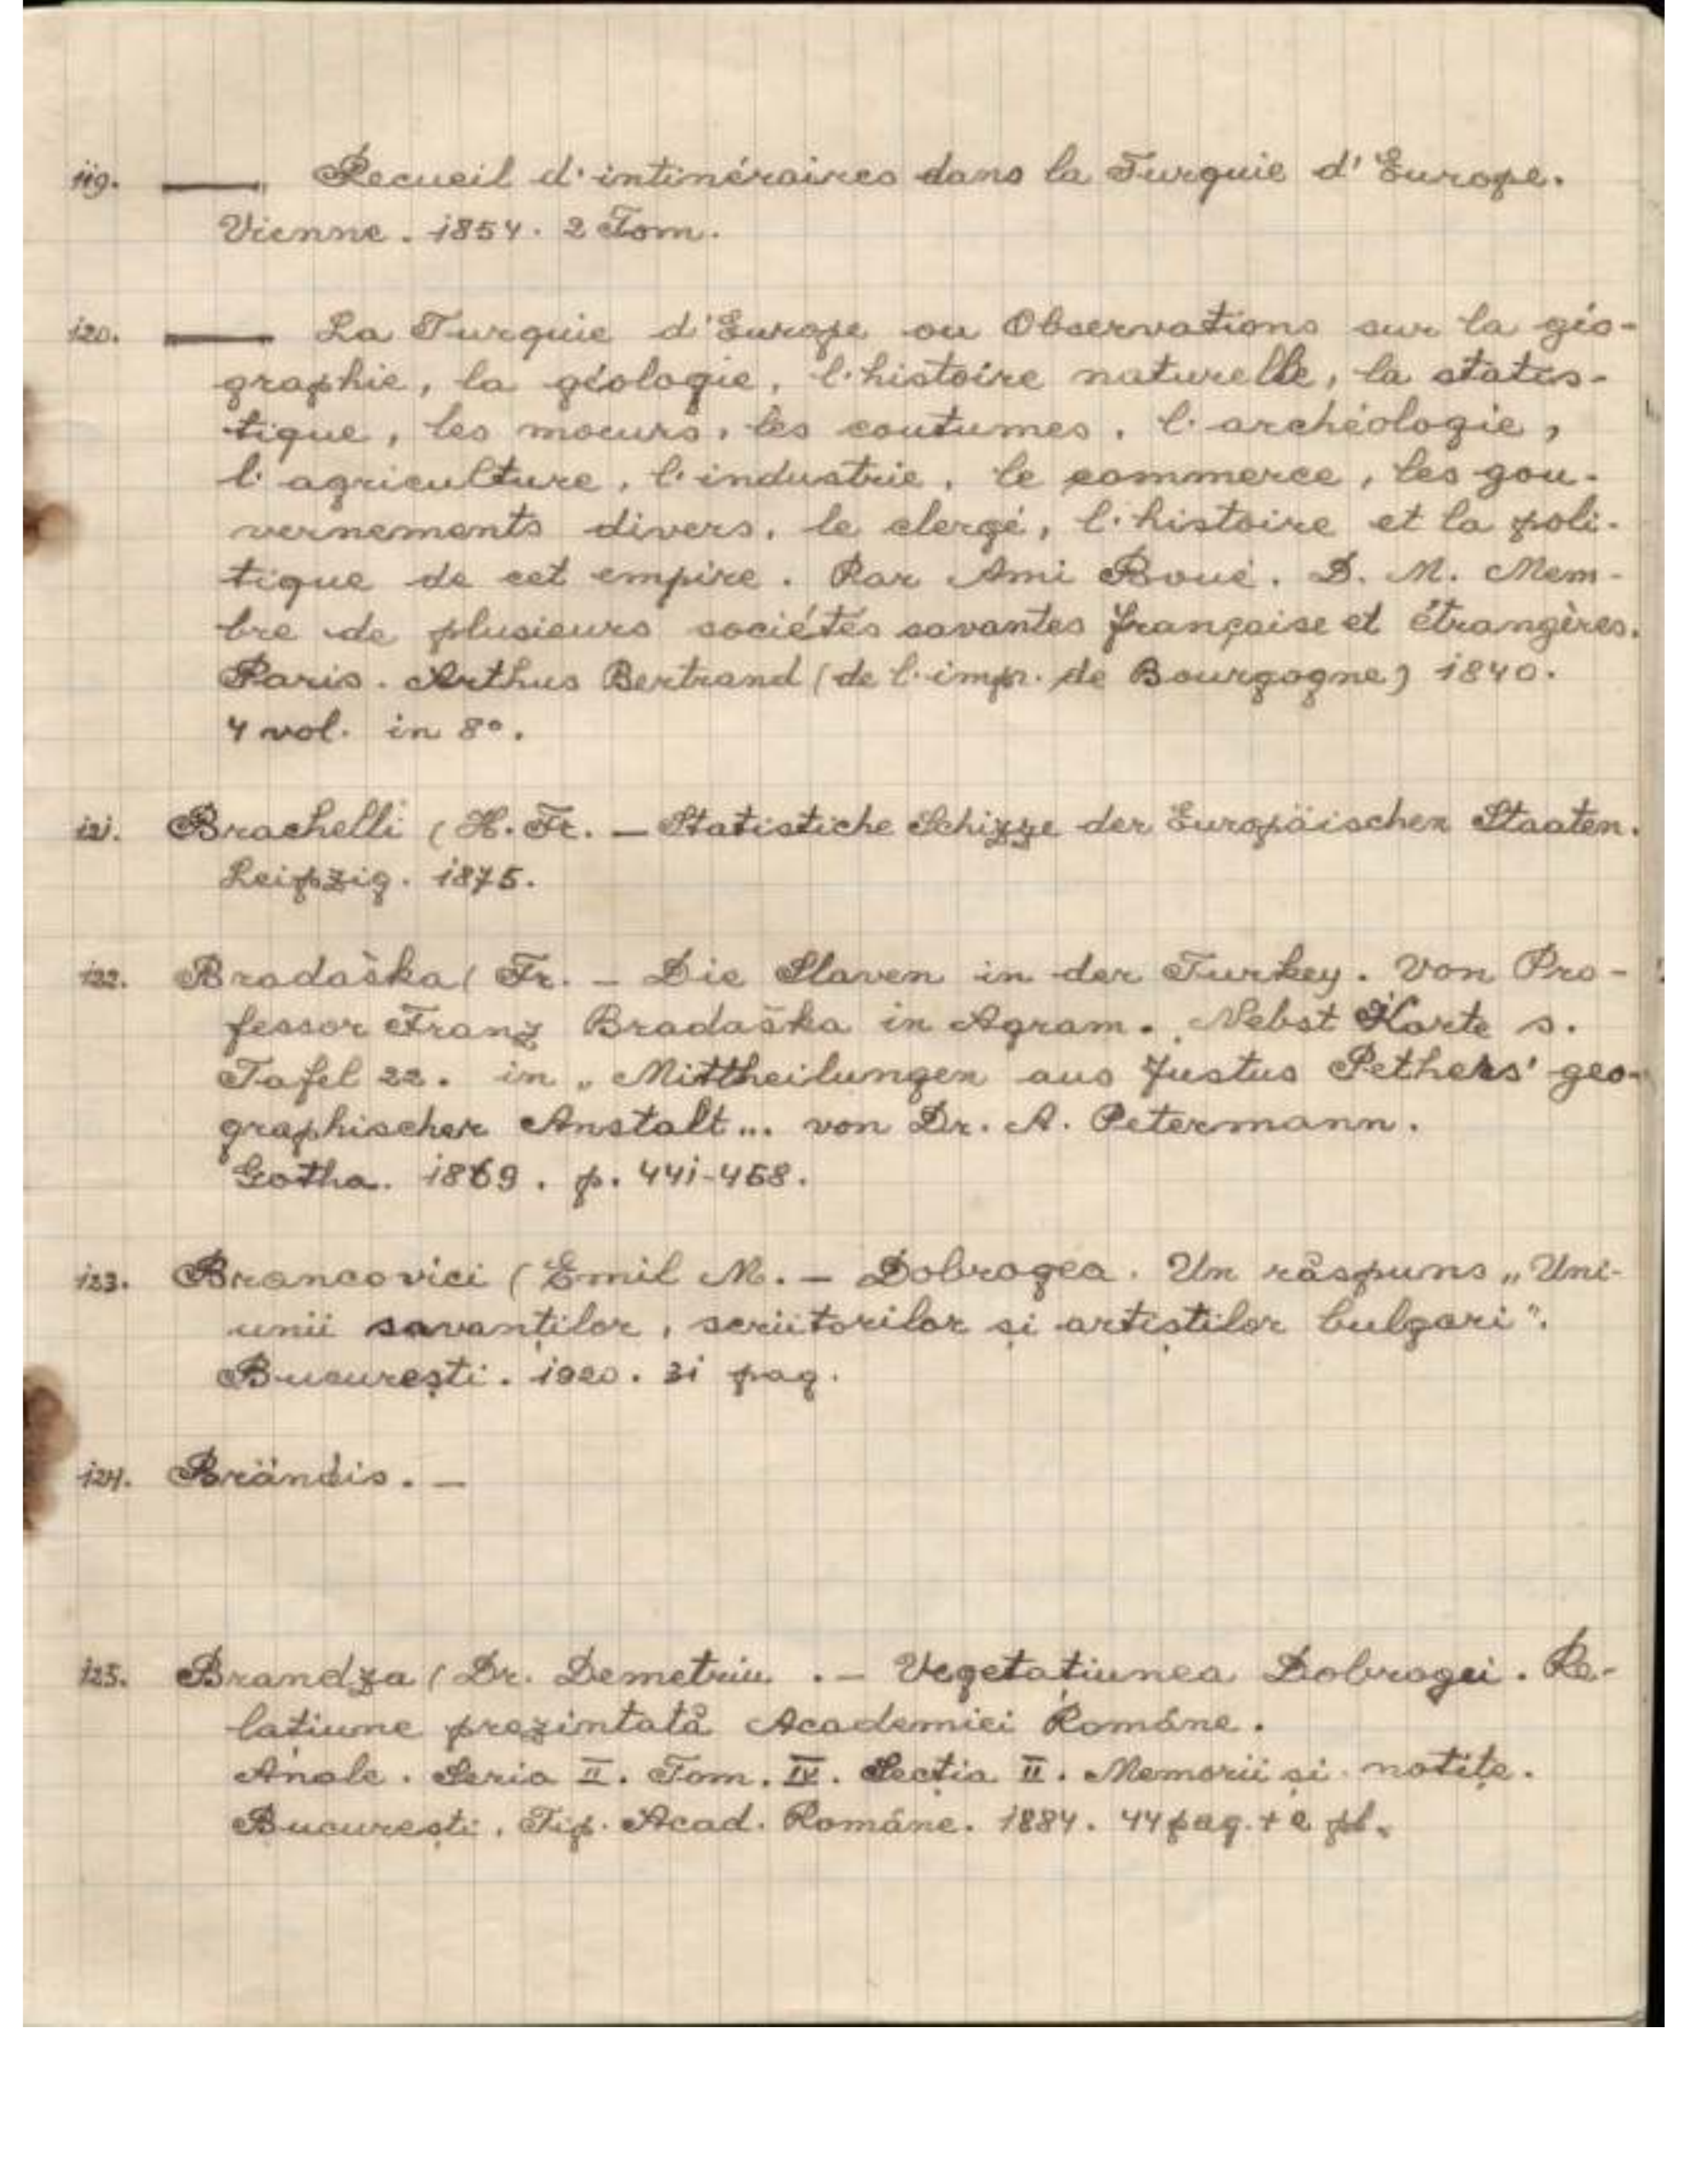 119. ——— Recueil d'intinéraires dans la Turquie d'Europe.
Vienne. 1854. 2 Tom.
120. ——— La Turquie d'Europe ou Observations sur la géo-
graphie, la géologie, l'histoire naturelle, la statis-
tique, les moeurs, les coutumes, l'archéologie,
l'agriculture, l'industrie, le commerce, les gou-
vernements divers, le clergé, l'histoire et la poli-
tique de cet empire. Par Ami Boué. D. M. Mem-
bre de plusieurs sociétés savantes française et étrangères.
Paris. Arthus Bertrand (de l'imp. de Bourgogne) 1840.
4 vol. in 8°.
121. Brachelli (H. Fr. — Statistiche Schizze der Europäischen Staaten.
Leipzig. 1875.
122. Bradaška (Fr. — Die Slaven in der Turkey. Von Pro-
fessor Franz Bradaška in Agram. Nebst Karte s.
Tafel 22. in „Mittheilungen aus Justus Pethers' geo-
graphischer Anstalt... von Dr. A. Petermann.
Gotha. 1869. p. 441-458.
123. Brancovici (Emil M. — Dobrogea. Un răspuns „Uni-
unii savanților, scriitorilor și artiștilor bulgari".
București. 1920. 31 pag.
124. Brändis. —
125. Brandza (Dr. Demetriu. — Vegetațiunea Dobrogei. Re-
lațiune prezintată Academiei Române.
Anale. Seria II. Tom. IV. Secția II. Memorii și notițe.
București. Tip. Acad. Române. 1884. 44 pag. + 2 pl.